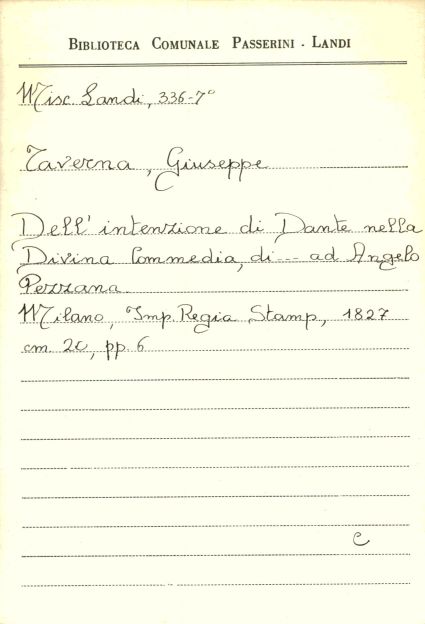 BIBLIOTECA COMUNALE PASSERINI - LANDI
Misc. Landi, 336-7°
Taverna, Giuseppe
Dell'intenzione di Dante nella
Divina Commedia, di --- ad Angelo
Pezzana.
Milano, Imp. Regia Stamp., 1827
cm. 20, pp. 6
C